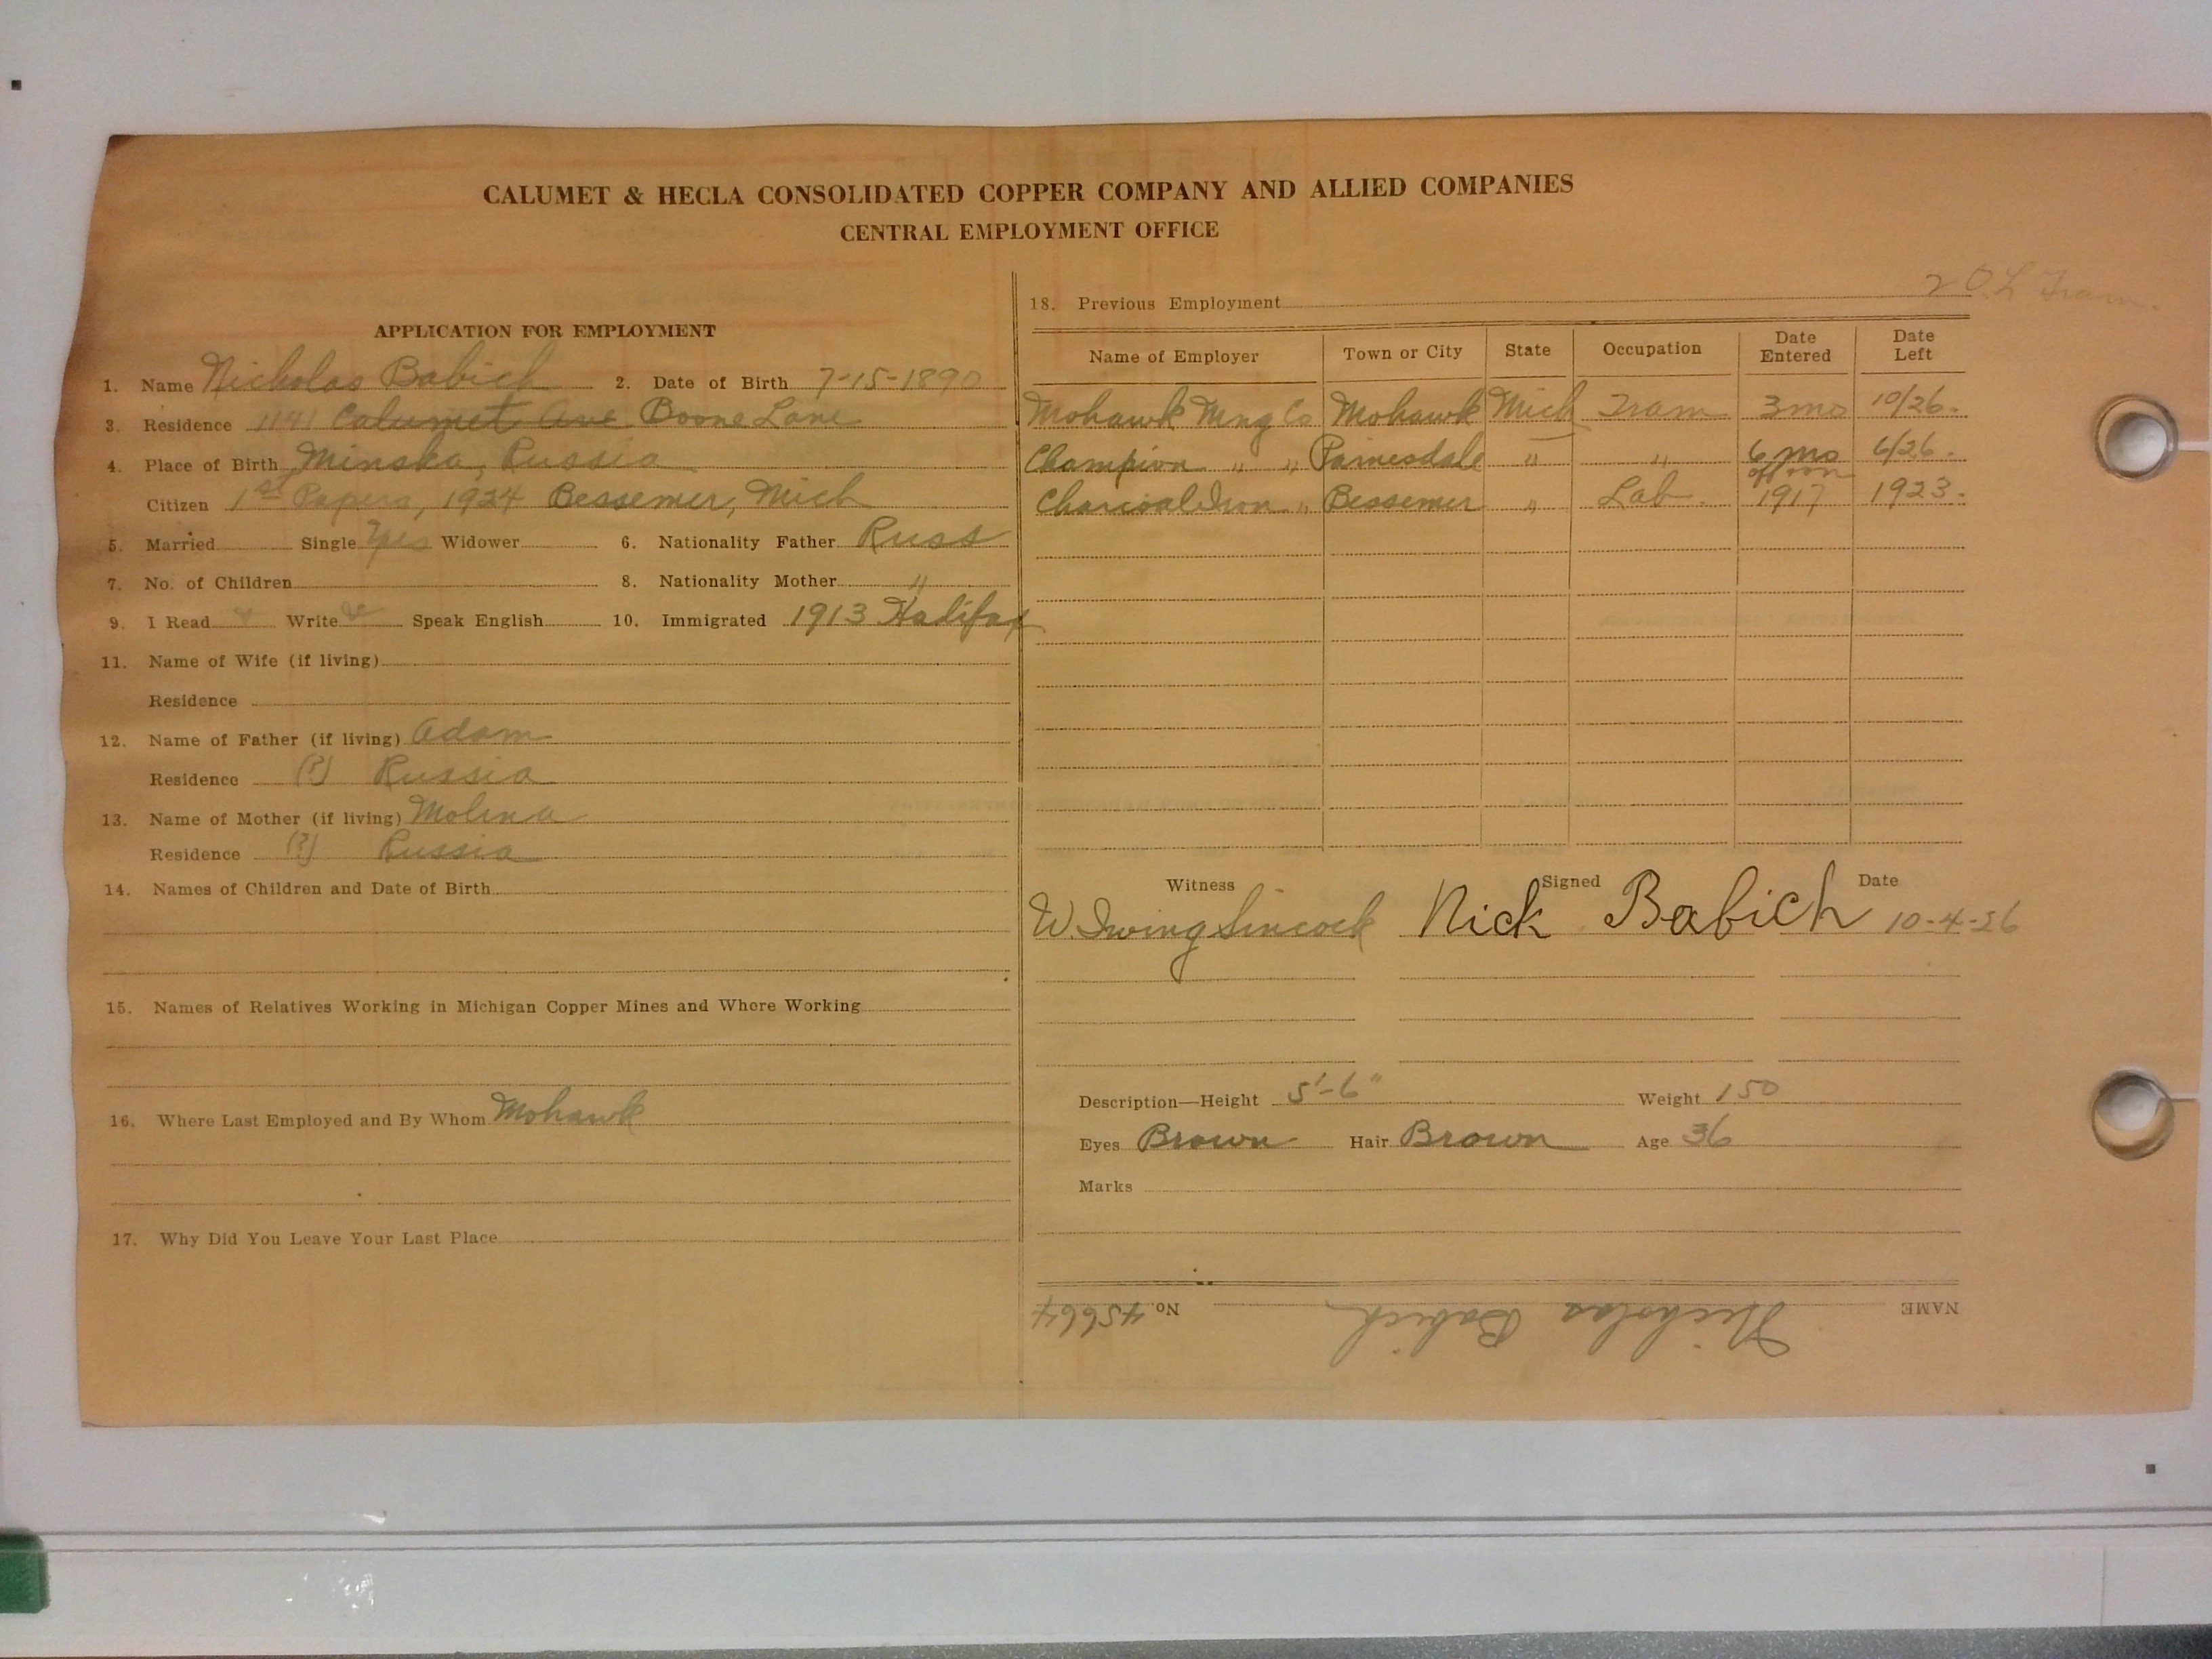 CALUMET & HECLA CONSOLIDATED COPPER COMPANY AND ALLIED COMPANIES
CENTRAL EMPLOYMENT OFFICE
APPLICATION FOR EMPLOYMENT
1. Name Nicholas Babich 2. Date of Birth 7-15-1890
3. Residence 1141 Calumet Ave Boone Lane
4. Place of Birth Minska, Russia
Citizen 1st Papers, 1924 Bessemer, Mich
5. Married Single Yes Widower 6. Nationality Father Russ
7. No. of Children 8. Nationality Mother "
9. I Read Write Speak English 10. Immigrated 1913 Halifax
11. Name of Wife (if living)
Residence
12. Name of Father (if living) Adam
Residence (?) Russia
13. Name of Mother (if living) Molina
Residence (?) Russia
14. Names of Children and Date of Birth
15. Names of Relatives Working in Michigan Copper Mines and Where Working
16. Where Last Employed and By Whom Mohawk
17. Why Did You Leave Your Last Place
2 O.L Tram.
18. Previous Employment
Name of Employer Town or City State Occupation Date Entered Date Left
Mohawk Mng Co Mohawk Mich Tram 3 mo 10/26.
Champion " " Painesdale " " 6 mo off & on 6/26.
Charcoal Iron " Bessemer " Lab. 1917 1923.
Witness Signed Date
W. Irving Sincock Nick Babich 10-4-26
Description—Height 5'-6" Weight 150
Eyes Brown Hair Brown Age 36
Marks
NAME Nicholas Babich No. 45664